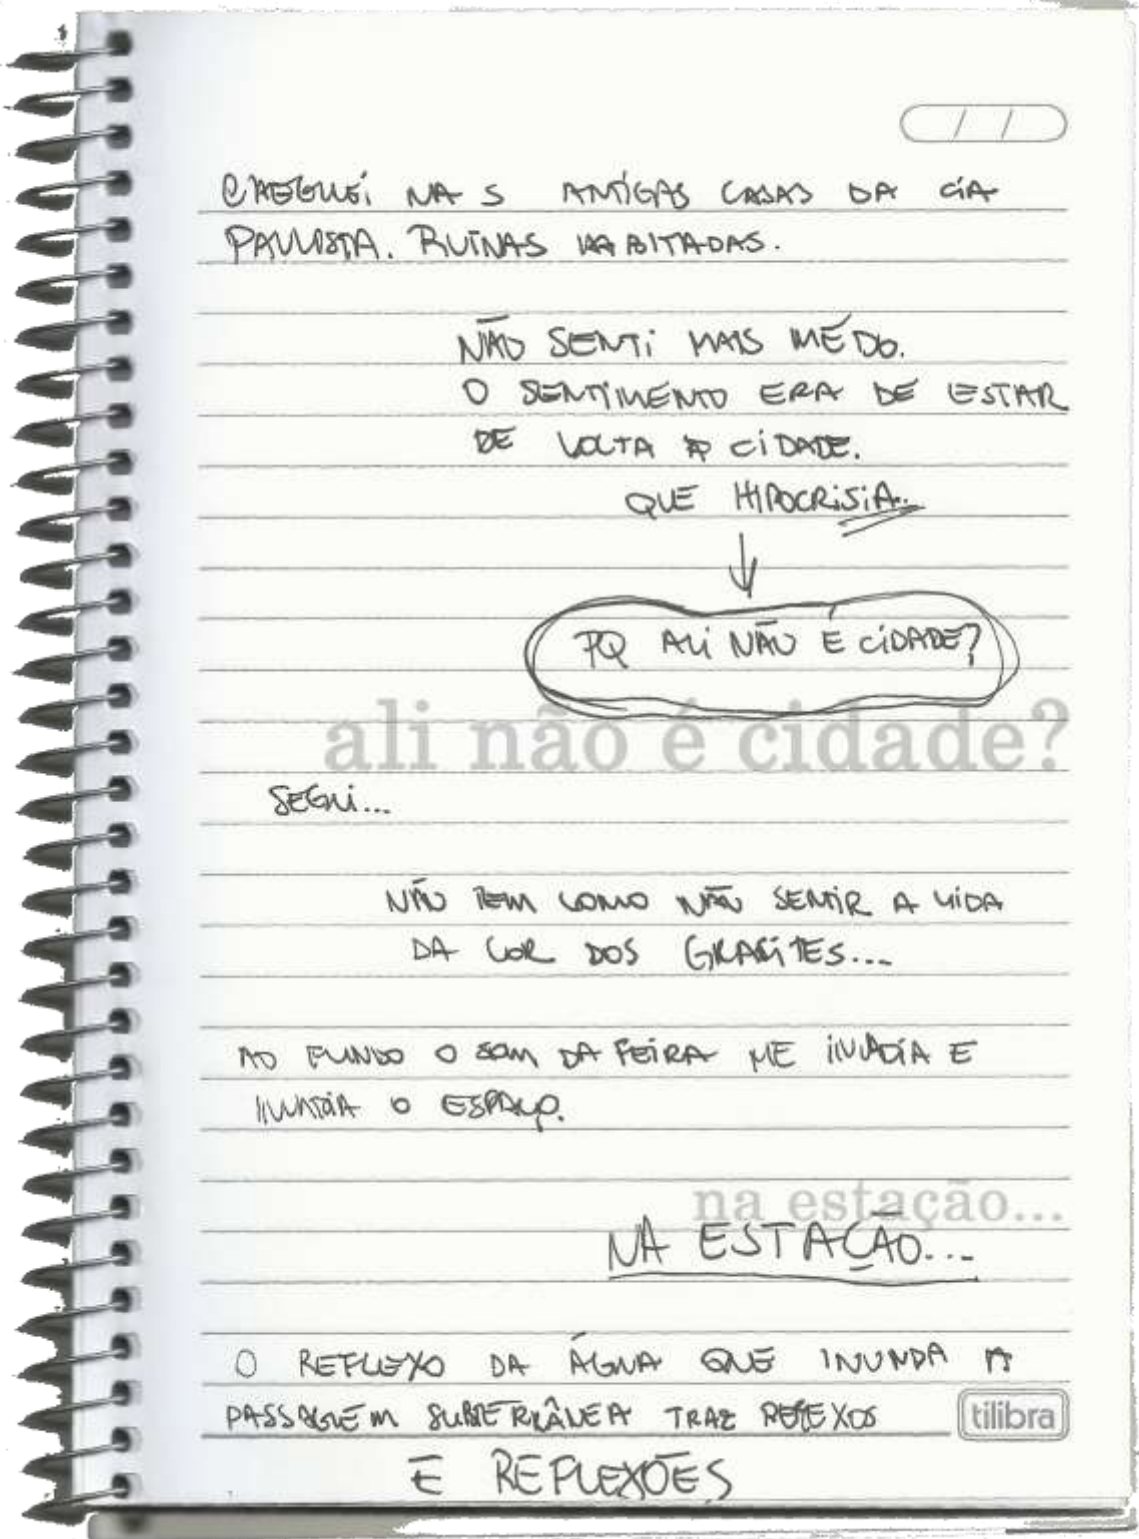 / /
CHEGUEI NAS ANTIGAS CASAS DA CIA
PAULISTA. RUÍNAS HABITADAS.
NÃO SENTI MAIS MÊDO.
O SENTIMENTO ERA DE ESTAR
DE VOLTA A CIDADE.
QUE HIPOCRISIA..
PQ ALI NÃO É CIDADE?
ali não é cidade?
SEGUI...
NÃO TEM COMO NÃO SENTIR A VIDA
DA COR DOS GRAFITES...
AO FUNDO O SOM DA FEIRA ME INVADIA E
INVADIA O ESPAÇO.
na estação...
NA ESTAÇÃO...
O REFLEXO DA ÁGUA QUE INUNDA A
PASSAGEM SUBTERRÂNEA TRAZ REFLEXOS
tilibra
E REFLEXÕES